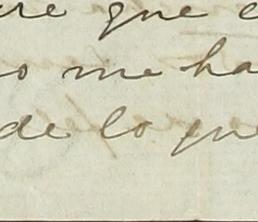 re que e
o me ha
de lo que